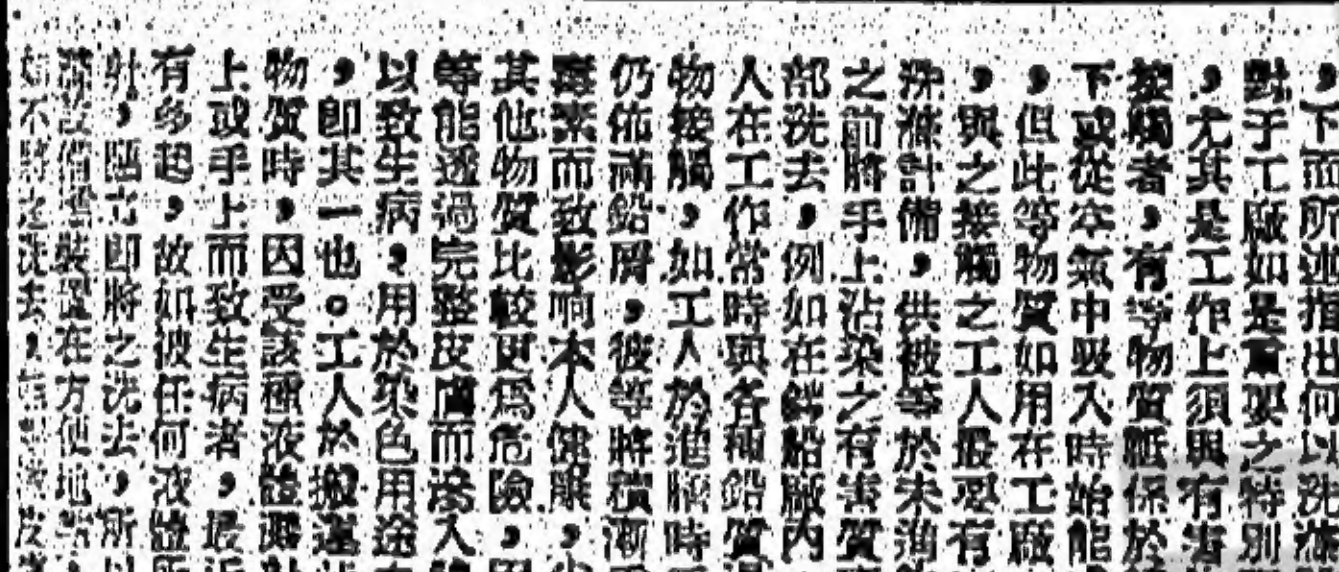 ，下而所述指出何以洗滌
對于工廠如是重要之特別
，尤其是工作上須與有害
接觸者，有等物質祗係於
下或從空氣中吸入時始能
，但此等物質如用在工廠
，與之接觸之工人最忍有
洗滌計備，供彼等於未進
之前將手上沾染之有害質
部洗去，例如在鉾船廠內
人在工作常時與各種鉛質
物接觸，如工人於進膳時
仍佈滿鉛屑，彼等將積漸
毒素而致影响本人健康，
其他物質比較更爲危險，
等能透過完整皮膚而滲入
以致生病，用於染色用途
，即其一也。工人於搬運
物質時，因受該種液體濺
上或手上而致生病者，最
有多起，故如彼任何液體
射，即將之洗去，所
備裝置在方便地
不將之洗去，